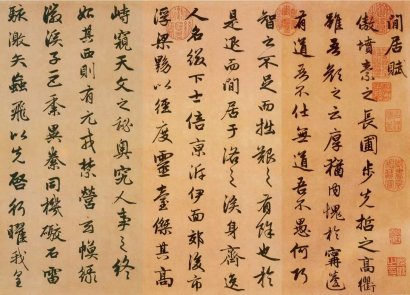 閒居賦
傲墳素之長圃步先哲之高衢
雖吾顏之云厚猶内愧於甯蘧
有道吾不仕無道吾不愚何巧
智之不足而拙艱之有餘也於
是退而閒居于洛之涘身齊逸
人名綴下士倍京泝伊面郊後市
浮梁黝以徑度靈臺傑其高
峙窺天文之秘奥究人事之終
始其西則有元戎禁營玄幙綠
徽谿子巨黍異絭同機礮石雷
駭激矢蝱飛以先啓行曜我皇